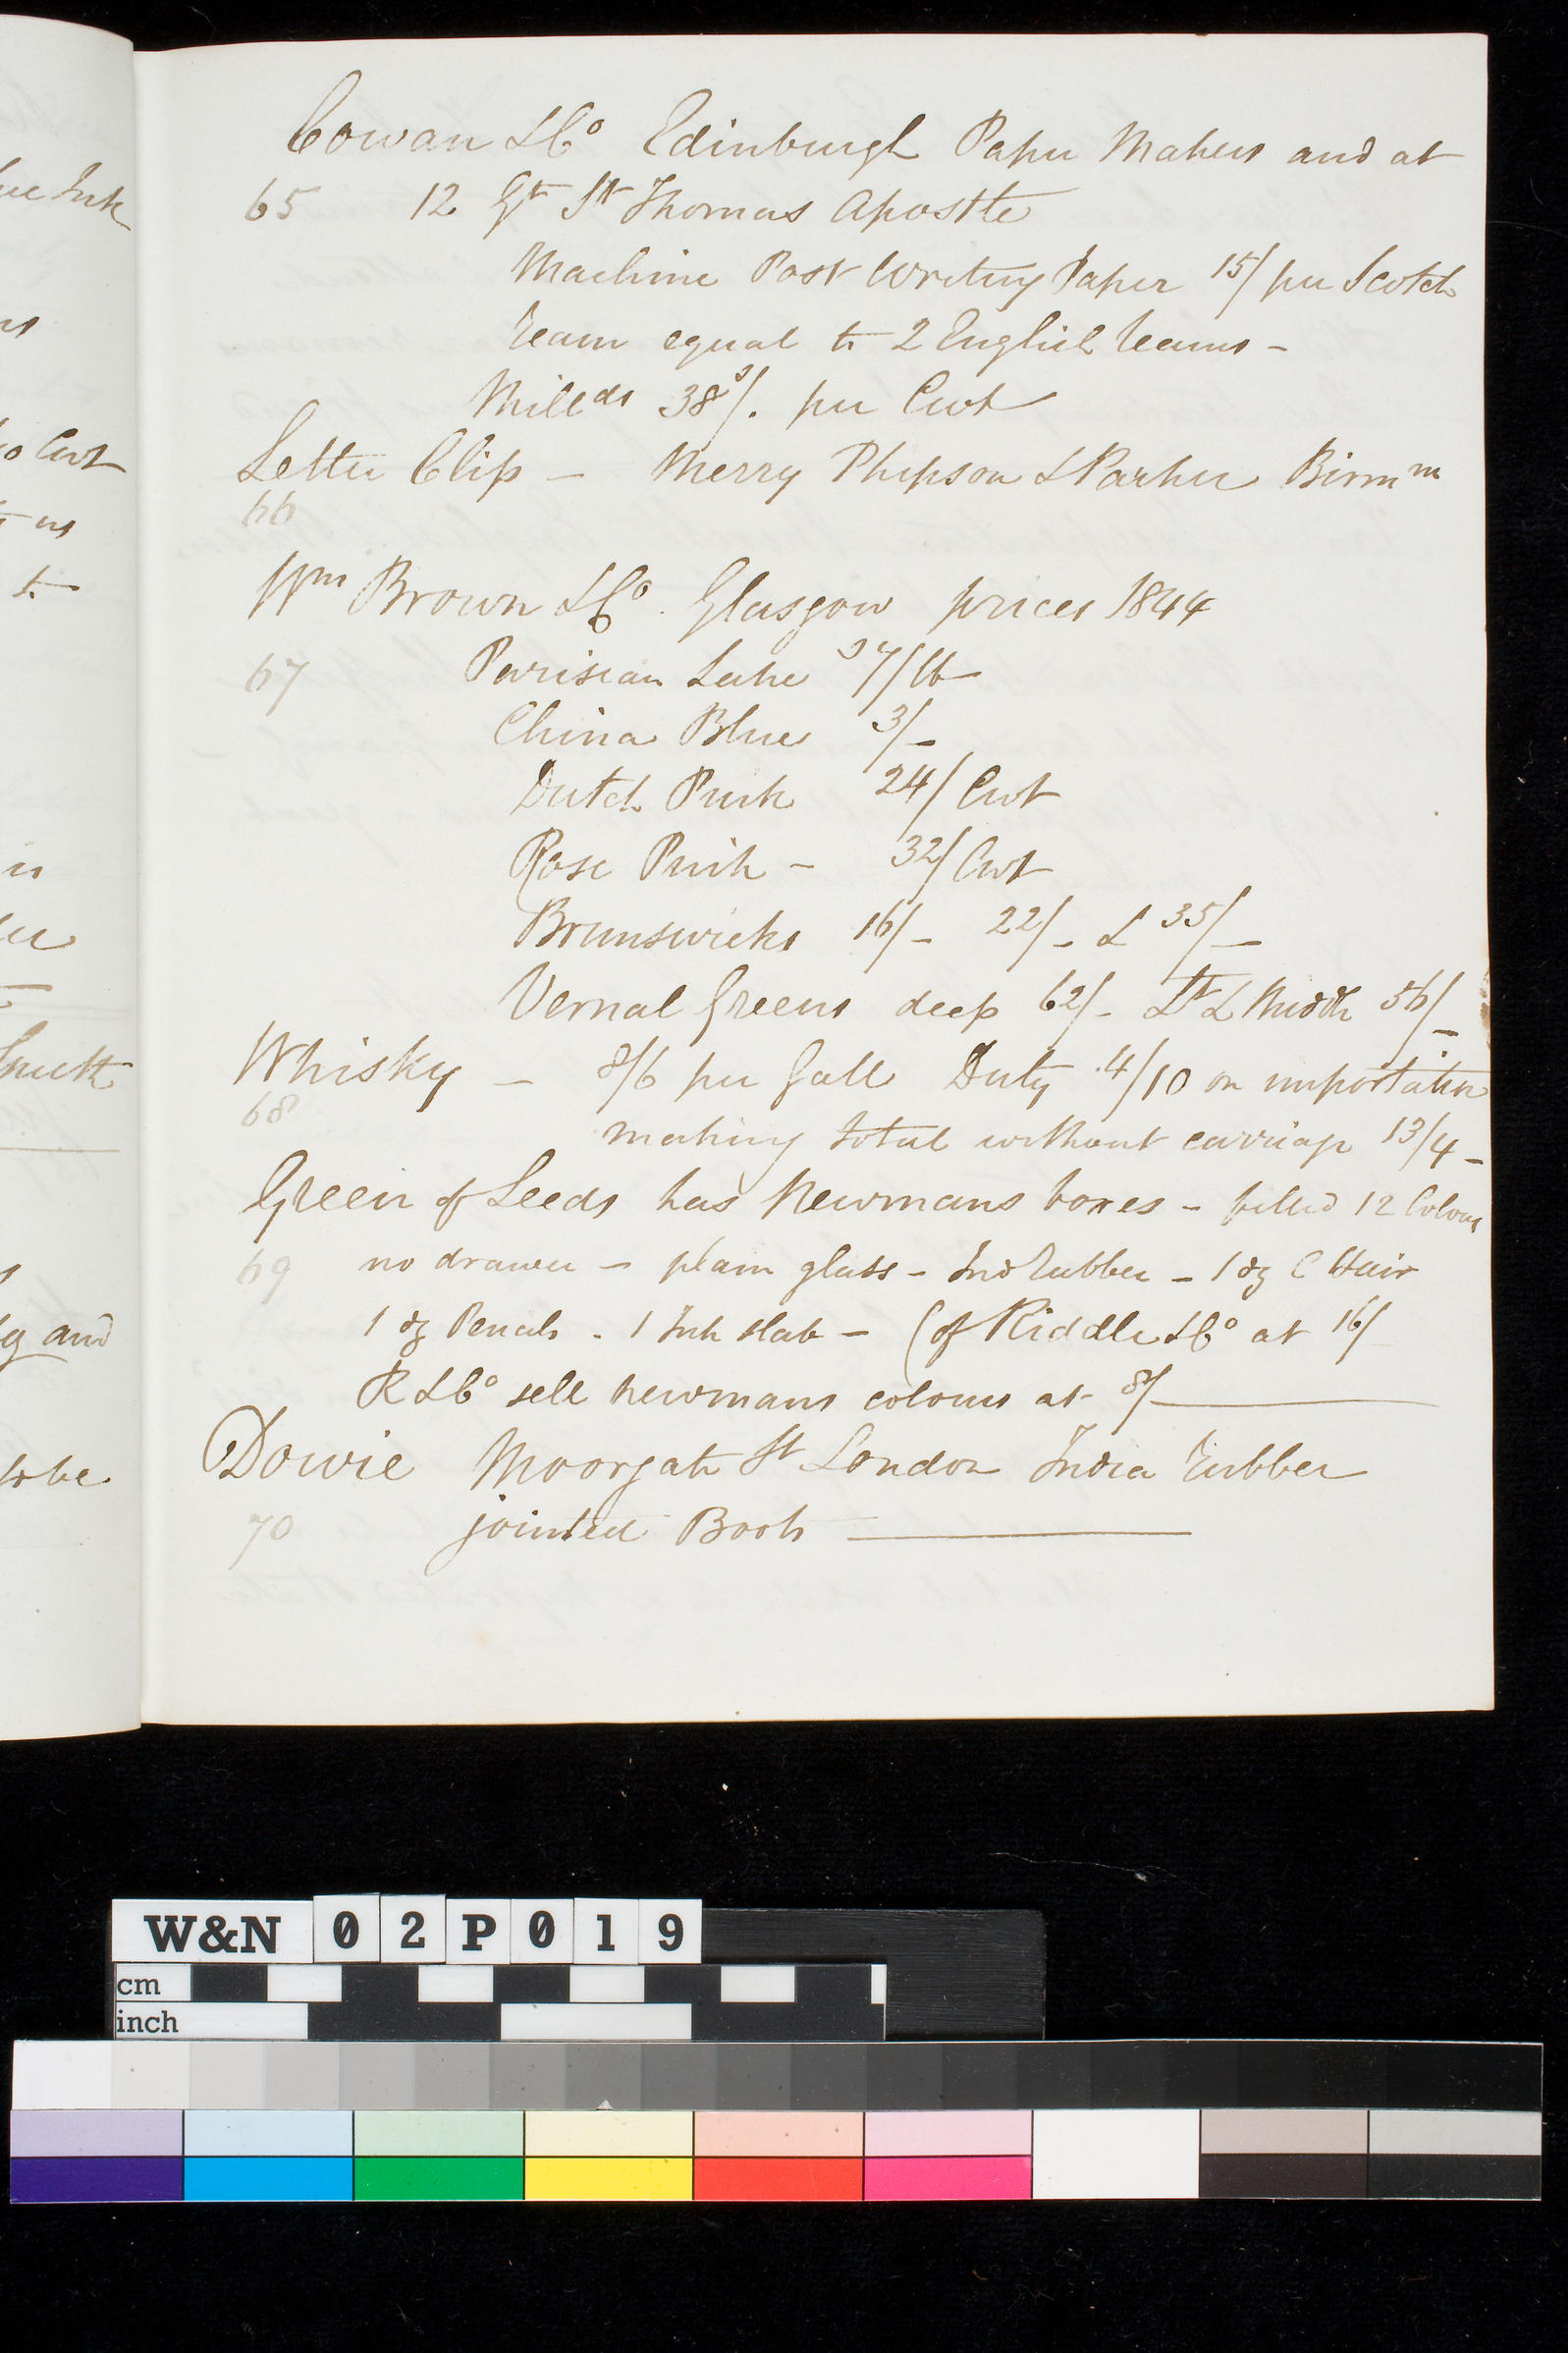 Cowan & Co Edinburgh Paper Makers and at
65 12 Gt St Thomas Apostle
Machine Post Writing Paper 15/ per Scotch
ream equal to 2 English reams -
Mill Bds 38s/. per Cwt
Letter Clip - Merry Phipson & Parker Birmm
66
Wm Brown & Co. Glasgow prices 1844
67 Parisian Lake 7/ lb
China Blue 3/-
Dutch Pink 24/ Cwt
Rose Pink - 32/ Cwt
Brunswicks 16/- 22/- & 35/-
Vernal Greens deep 62/- Lt & Middle 56/-
Whisky - 8/6 per Gall Duty 4/10 on importation
68
making total without carriage 13/4 -
Green of Leeds has Newmans boxes - filled 12 Colours
69 no drawer - plain glass - Ind rubber - 1 dz C Hair
1 dz Pencils - 1 Ink slab - (of Riddle & Co at 16/
R & Co sell newmans colours at 8/-
Dowie Moorgate St London India Rubber
70 jointed Boots
ink
Cwt
to
and
to be
W&N 02P019
cm
inch